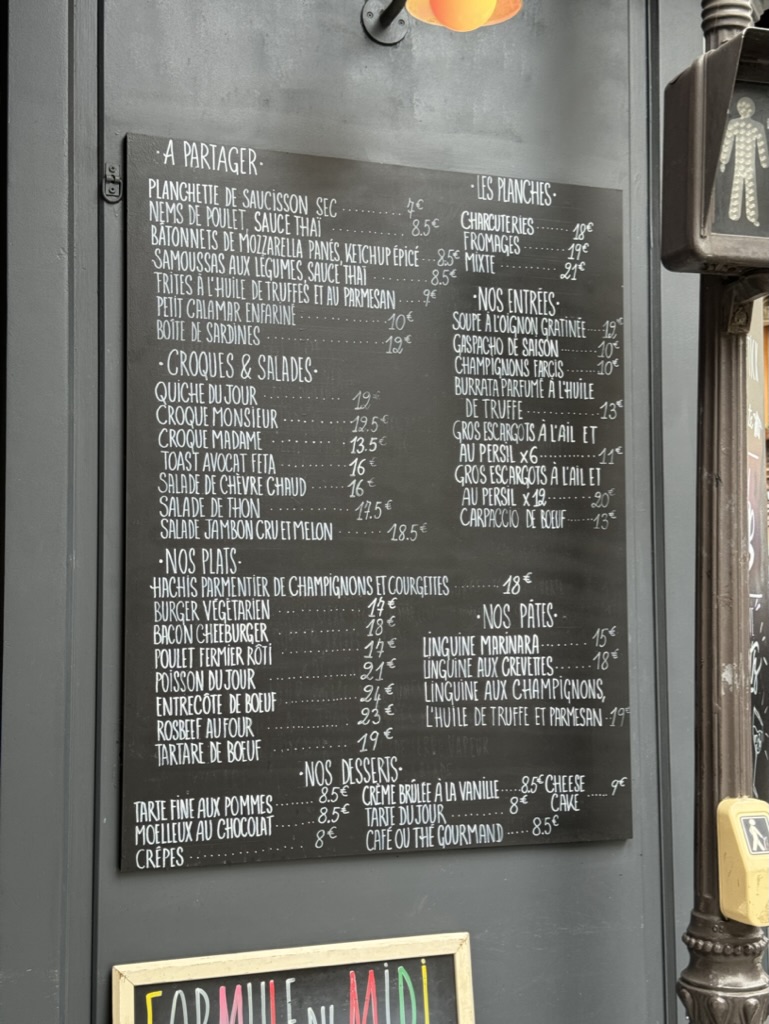 ·A PARTAGER·
PLANCHETTE DE SAUCISSON SEC ........... 7€
NEMS DE POULET, SAUCE THAÏ ........... 8.5€
BÂTONNETS DE MOZZARELLA PANÉS, KETCHUP ÉPICÉ ... 8.5€
SAMOUSSAS AUX LÉGUMES, SAUCE THAÏ ......... 8.5€
FRITES À L'HUILE DE TRUFFES ET AU PARMESAN .... 9€
PETIT CALAMAR ENFARINÉ ............. 10€
BOÎTE DE SARDINES ................. 12€
·CROQUES & SALADES·
QUICHE DU JOUR .............. 12€
CROQUE MONSIEUR ........... 12.5€
CROQUE MADAME ............ 13.5€
TOAST AVOCAT FETA .......... 16€
SALADE DE CHÈVRE CHAUD ..... 16€
SALADE DE THON .............. 17.5€
SALADE JAMBON CRU ET MELON ......... 18.5€
·LES PLANCHES·
CHARCUTERIES ..... 18€
FROMAGES ....... 19€
MIXTE .......... 21€
·NOS ENTRÉES·
SOUPE À L'OIGNON GRATINÉE ... 12€
GASPACHO DE SAISON ....... 10€
CHAMPIGNONS FARCIS ...... 10€
BURRATA PARFUMÉ À L'HUILE
DE TRUFFE ............. 13€
GROS ESCARGOTS À L'AIL ET
AU PERSIL x6 ........... 11€
GROS ESCARGOTS À L'AIL ET
AU PERSIL x12 ........ 20€
CARPACCIO DE BŒUF ..... 13€
·NOS PLATS·
HACHIS PARMENTIER DE CHAMPIGNONS ET COURGETTES ........ 18€
BURGER VÉGÉTARIEN ............ 17€
BACON CHEEBURGER ............ 18€
POULET FERMIER RÔTI ........... 17€
POISSON DU JOUR ............. 21€
ENTRECÔTE DE BŒUF ........... 24€
ROSBEEF AU FOUR ............. 23€
TARTARE DE BŒUF ............ 19€
·NOS PÂTES·
LINGUINE MARINARA ........ 15€
LINGUINE AUX CREVETTES ...... 18€
LINGUINE AUX CHAMPIGNONS,
L'HUILE DE TRUFFE ET PARMESAN · 19€
·NOS DESSERTS·
TARTE FINE AUX POMMES ....... 8.5€
MOELLEUX AU CHOCOLAT ....... 8.5€
CRÊPES .................. 8€
CRÈME BRÛLÉE À LA VANILLE .... 8.5€
TARTE DU JOUR .......... 8€
CAFÉ OU THÉ GOURMAND ..... 8.5€
CHEESE
CAKE ..... 9€
FORMULE DU MIDI